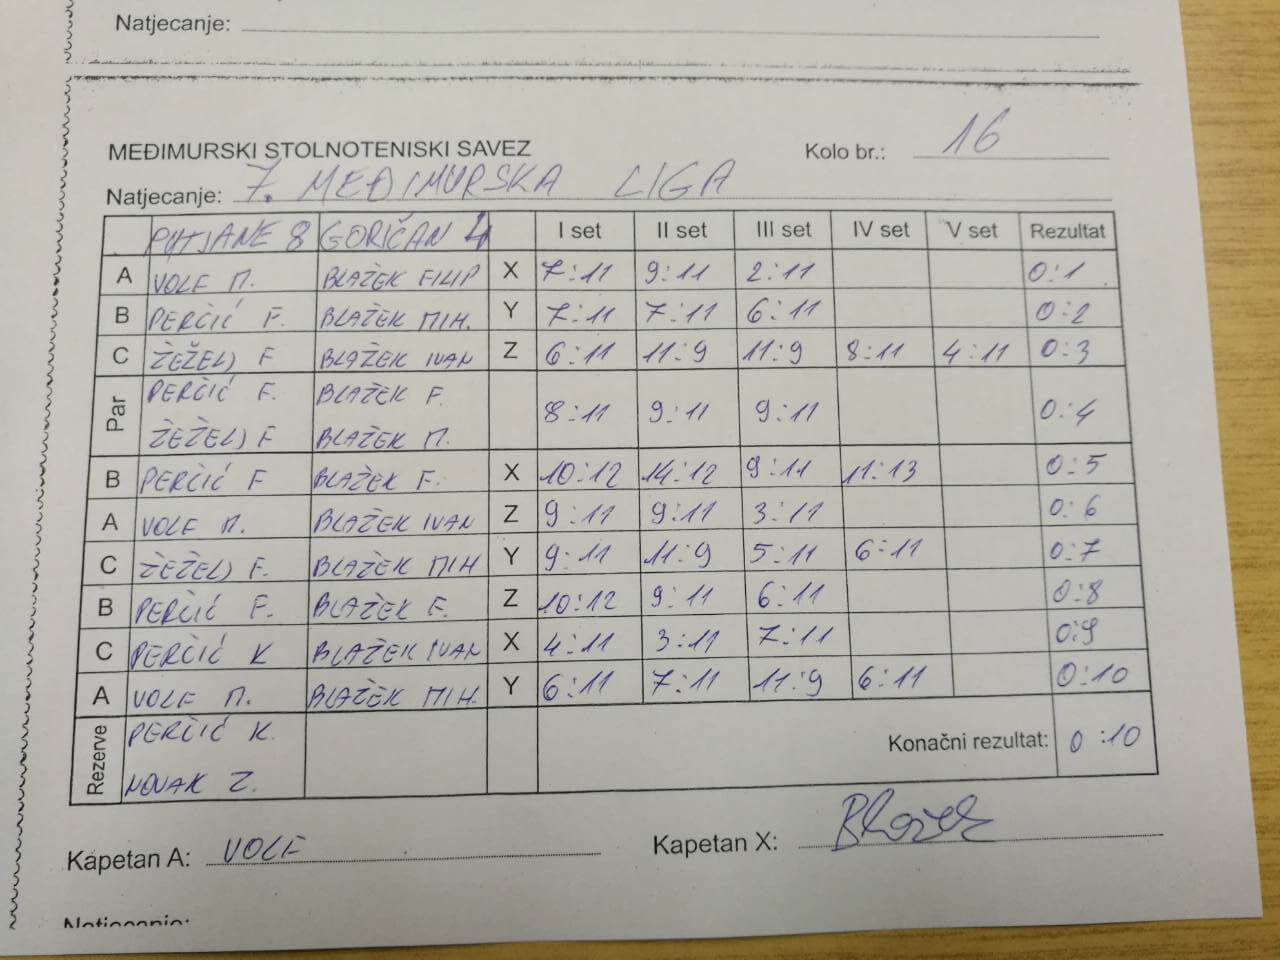 Natjecanje:
MEĐIMURSKI STOLNOTENISKI SAVEZ
Kolo br.: 16
Natjecanje: 7. MEĐIMURSKA LIGA
PUTJANE 8 GORIČAN 4 I set II set III set IV set V set Rezultat
A VOLF M. BLAŽEK FILIP X 7:11 9:11 2:11 0:1
B PERČIĆ F. BLAŽEK MIH. Y 7:11 7:11 6:11 0:2
C ŽEŽELJ F BLAŽEK IVAN Z 6:11 11:9 11:9 8:11 4:11 0:3
Par PERČIĆ F. BLAŽEK F. 8:11 9:11 9:11 0:4
ŽEŽELJ F BLAŽEK M.
B PERČIĆ F BLAŽEK F. X 10:12 14:12 9:11 11:13 0:5
A VOLF M. BLAŽEK IVAN Z 9:11 9:11 3:11 0:6
C ŽEŽELJ F. BLAŽEK MIH Y 9:11 11:9 5:11 6:11 0:7
B PERČIĆ F. BLAŽEK F. Z 10:12 9:11 6:11 0:8
C PERČIĆ K BLAŽEK IVAN X 4:11 3:11 7:11 0:9
A VOLF M. BLAŽEK MIH. Y 6:11 7:11 11:9 6:11 0:10
Rezerve PERČIĆ K. Konačni rezultat: 0:10
NOVAK Z.
Kapetan A: VOLF
Kapetan X: Blažek
Natjecanje: